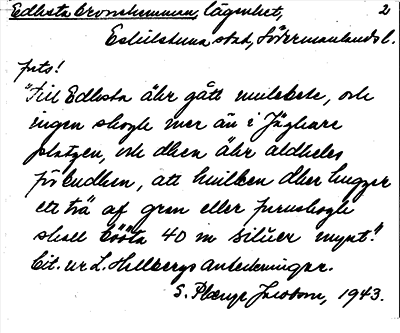 Edlesta Cronohemman, lägenhet, 2
Eskilstuna stad, Södermanlands l.
fuls!
"Till Edlesta ähr gått mulebete, och
ingen skogh mer än i Jäghare
platzen, och dhen ähr aldheles
förbudhen, att hwilken dher hugger
ett trä af gran eller furuskogh
skall bööta 40 m silwer mynt."
Cit. ur L. Hellbergs anteckningar.
S. Jacobson, 1943.